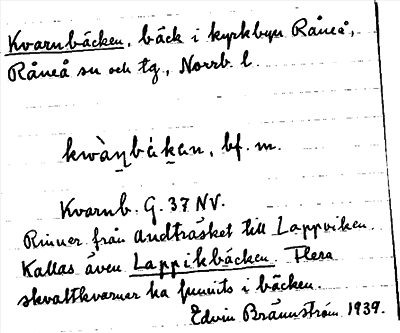 Kvarnbäcken, bäck i kyrkbyn Råneå,
Råneå sn och tg., Norrb. l.
kwàṇbákan, bf. m.
Kvarnb. G. 37 NV.
Rinner från Andträsket till Lappviken.
Kallas även Lappikbäcken. Flera
skvaltkvarner ha funnits i bäcken.
Edvin Brännström 1939.